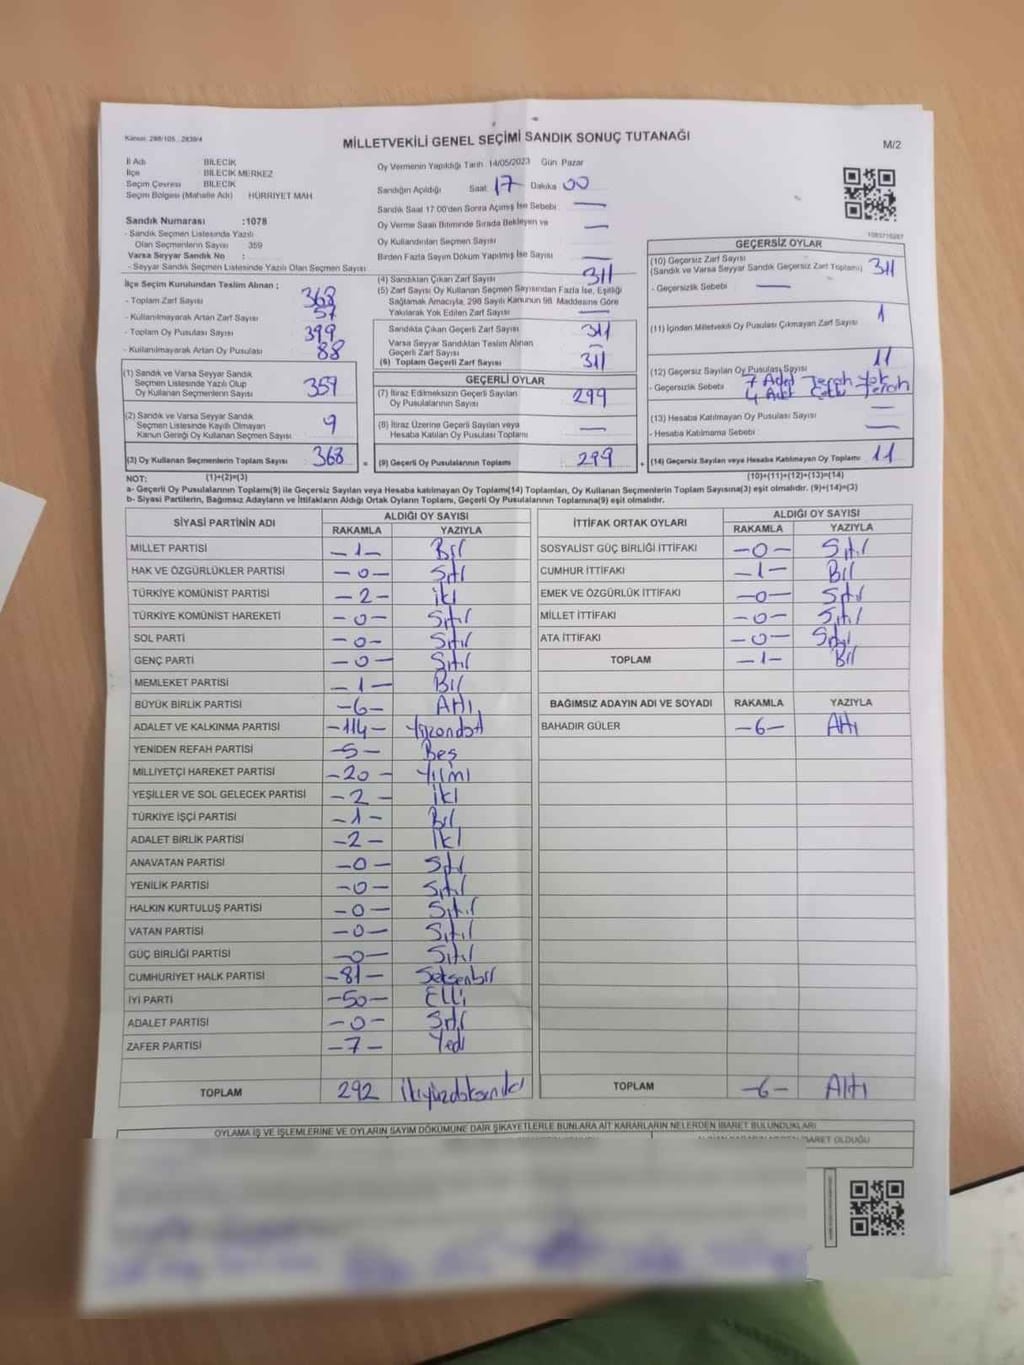 Kanun: 298/105 , 2839/4
MİLLETVEKİLİ GENEL SEÇİMİ SANDIK SONUÇ TUTANAĞI
M/2
İl Adı BİLECİK
İlçe BİLECİK MERKEZ
Seçim Çevresi BİLECİK
Seçim Bölgesi (Mahalle Adı) HÜRRİYET MAH
Sandık Numarası :1078
- Sandık Seçmen Listesinde Yazılı
Olan Seçmenlerin Sayısı 359
Varsa Seyyar Sandık No :
- Seyyar Sandık Seçmen Listesinde Yazılı Olan Seçmen Sayısı
Oy Vermenin Yapıldığı Tarih 14/05/2023 Gün Pazar
Sandığın Açıldığı Saat 17 Dakika 00
Sandık Saat 17.00'den Sonra Açılmış İse Sebebi —
Oy Verme Saati Bitiminde Sırada Bekleyen ve
Oy Kullandırılan Seçmen Sayısı —
Birden Fazla Sayım Döküm Yapılmış İse Sayısı —
İlçe Seçim Kurulundan Teslim Alınan ;
- Toplam Zarf Sayısı 368
- Kullanılmayarak Artan Zarf Sayısı 57
- Toplam Oy Pusulası Sayısı 399
- Kullanılmayarak Artan Oy Pusulası 88
(1) Sandık ve Varsa Seyyar Sandık
Seçmen Listesinde Yazılı Olup
Oy Kullanan Seçmenlerin Sayısı 359
(2) Sandık ve Varsa Seyyar Sandık
Seçmen Listesinde Kayıtlı Olmayan
Kanun Gereği Oy Kullanan Seçmen Sayısı 9
(3) Oy Kullanan Seçmenlerin Toplam Sayısı 368
(4) Sandıktan Çıkan Zarf Sayısı 311
(5) Zarf Sayısı Oy Kullanan Seçmen Sayısından Fazla İse, Eşitliği
Sağlamak Amacıyla, 298 Sayılı Kanunun 98. Maddesine Göre
Yakılarak Yok Edilen Zarf Sayısı —
Sandıkta Çıkan Geçerli Zarf Sayısı 311
Varsa Seyyar Sandıktan Teslim Alınan
Geçerli Zarf Sayısı —
(6) Toplam Geçerli Zarf Sayısı 311
GEÇERLİ OYLAR
(7) İtiraz Edilmeksizin Geçerli Sayılan
Oy Pusulalarının Sayısı 299
(8) İtiraz Üzerine Geçerli Sayılan veya
Hesaba Katılan Oy Pusulası Toplamı —
= (9) Geçerli Oy Pusulalarının Toplamı 299
GEÇERSİZ OYLAR
(10) Geçersiz Zarf Sayısı
(Sandık ve Varsa Seyyar Sandık Geçersiz Zarf Toplamı) 311
- Geçersizlik Sebebi —
(11) İçinden Milletvekili Oy Pusulası Çıkmayan Zarf Sayısı 1
(12) Geçersiz Sayılan Oy Pusulası Sayısı 11
- Geçersizlik Sebebi 7 Adet Tercih Yok
4 Adet Çoklu Tercih
(13) Hesaba Katılmayan Oy Pusulası Sayısı —
- Hesaba Katılmama Sebebi —
+ (14) Geçersiz Sayılan veya Hesaba Katılmayan Oy Toplamı 11
NOT: (1)+(2)=(3)
(10)+(11)+(12)+(13)=(14)
a- Geçerli Oy Pusulalarının Toplamı(9) ile Geçersiz Sayılan veya Hesaba katılmayan Oy Toplamı(14) Toplamları, Oy Kullanan Seçmenlerin Toplam Sayısına(3) eşit olmalıdır. (9)+(14)=(3)
b- Siyasi Partilerin, Bağımsız Adayların ve İttifakların Aldığı Ortak Oyların Toplamı, Geçerli Oy Pusulalarının Toplamına(9) eşit olmalıdır.
SİYASİ PARTİNİN ADI ALDIĞI OY SAYISI
RAKAMLA YAZIYLA
MİLLET PARTİSİ -1- Bir
HAK VE ÖZGÜRLÜKLER PARTİSİ -0- Sıfır
TÜRKİYE KOMÜNİST PARTİSİ -2- İki
TÜRKİYE KOMÜNİST HAREKETİ -0- Sıfır
SOL PARTİ -0- Sıfır
GENÇ PARTİ -0- Sıfır
MEMLEKET PARTİSİ -1- Bir
BÜYÜK BİRLİK PARTİSİ -6- Altı
ADALET VE KALKINMA PARTİSİ -114- Yüzondört
YENİDEN REFAH PARTİSİ -5- Beş
MİLLİYETÇİ HAREKET PARTİSİ -20- Yirmi
YEŞİLLER VE SOL GELECEK PARTİSİ -2- İki
TÜRKİYE İŞÇİ PARTİSİ -1- Bir
ADALET BİRLİK PARTİSİ -2- İki
ANAVATAN PARTİSİ -0- Sıfır
YENİLİK PARTİSİ -0- Sıfır
HALKIN KURTULUŞ PARTİSİ -0- Sıfır
VATAN PARTİSİ -0- Sıfır
GÜÇ BİRLİĞİ PARTİSİ -0- Sıfır
CUMHURİYET HALK PARTİSİ -81- Seksenbir
İYİ PARTİ -50- Elli
ADALET PARTİSİ -0- Sıfır
ZAFER PARTİSİ -7- Yedi
TOPLAM 292 İkiyüzdoksaniki
İTTİFAK ORTAK OYLARI ALDIĞI OY SAYISI
RAKAMLA YAZIYLA
SOSYALİST GÜÇ BİRLİĞİ İTTİFAKI -0- Sıfır
CUMHUR İTTİFAKI -1- Bir
EMEK VE ÖZGÜRLÜK İTTİFAKI -0- Sıfır
MİLLET İTTİFAKI -0- Sıfır
ATA İTTİFAKI -0- Sıfır
TOPLAM -1- Bir
BAĞIMSIZ ADAYIN ADI VE SOYADI RAKAMLA YAZIYLA
BAHADIR GÜLER -6- Altı
TOPLAM -6- Altı
OYLAMA İŞ VE İŞLEMLERİNE VE OYLARIN SAYIM DÖKÜMÜNE DAİR ŞİKAYETLERLE BUNLARA AİT KARARLARIN NELERDEN İBARET BULUNDUKLARI
İBARET OLDUĞU